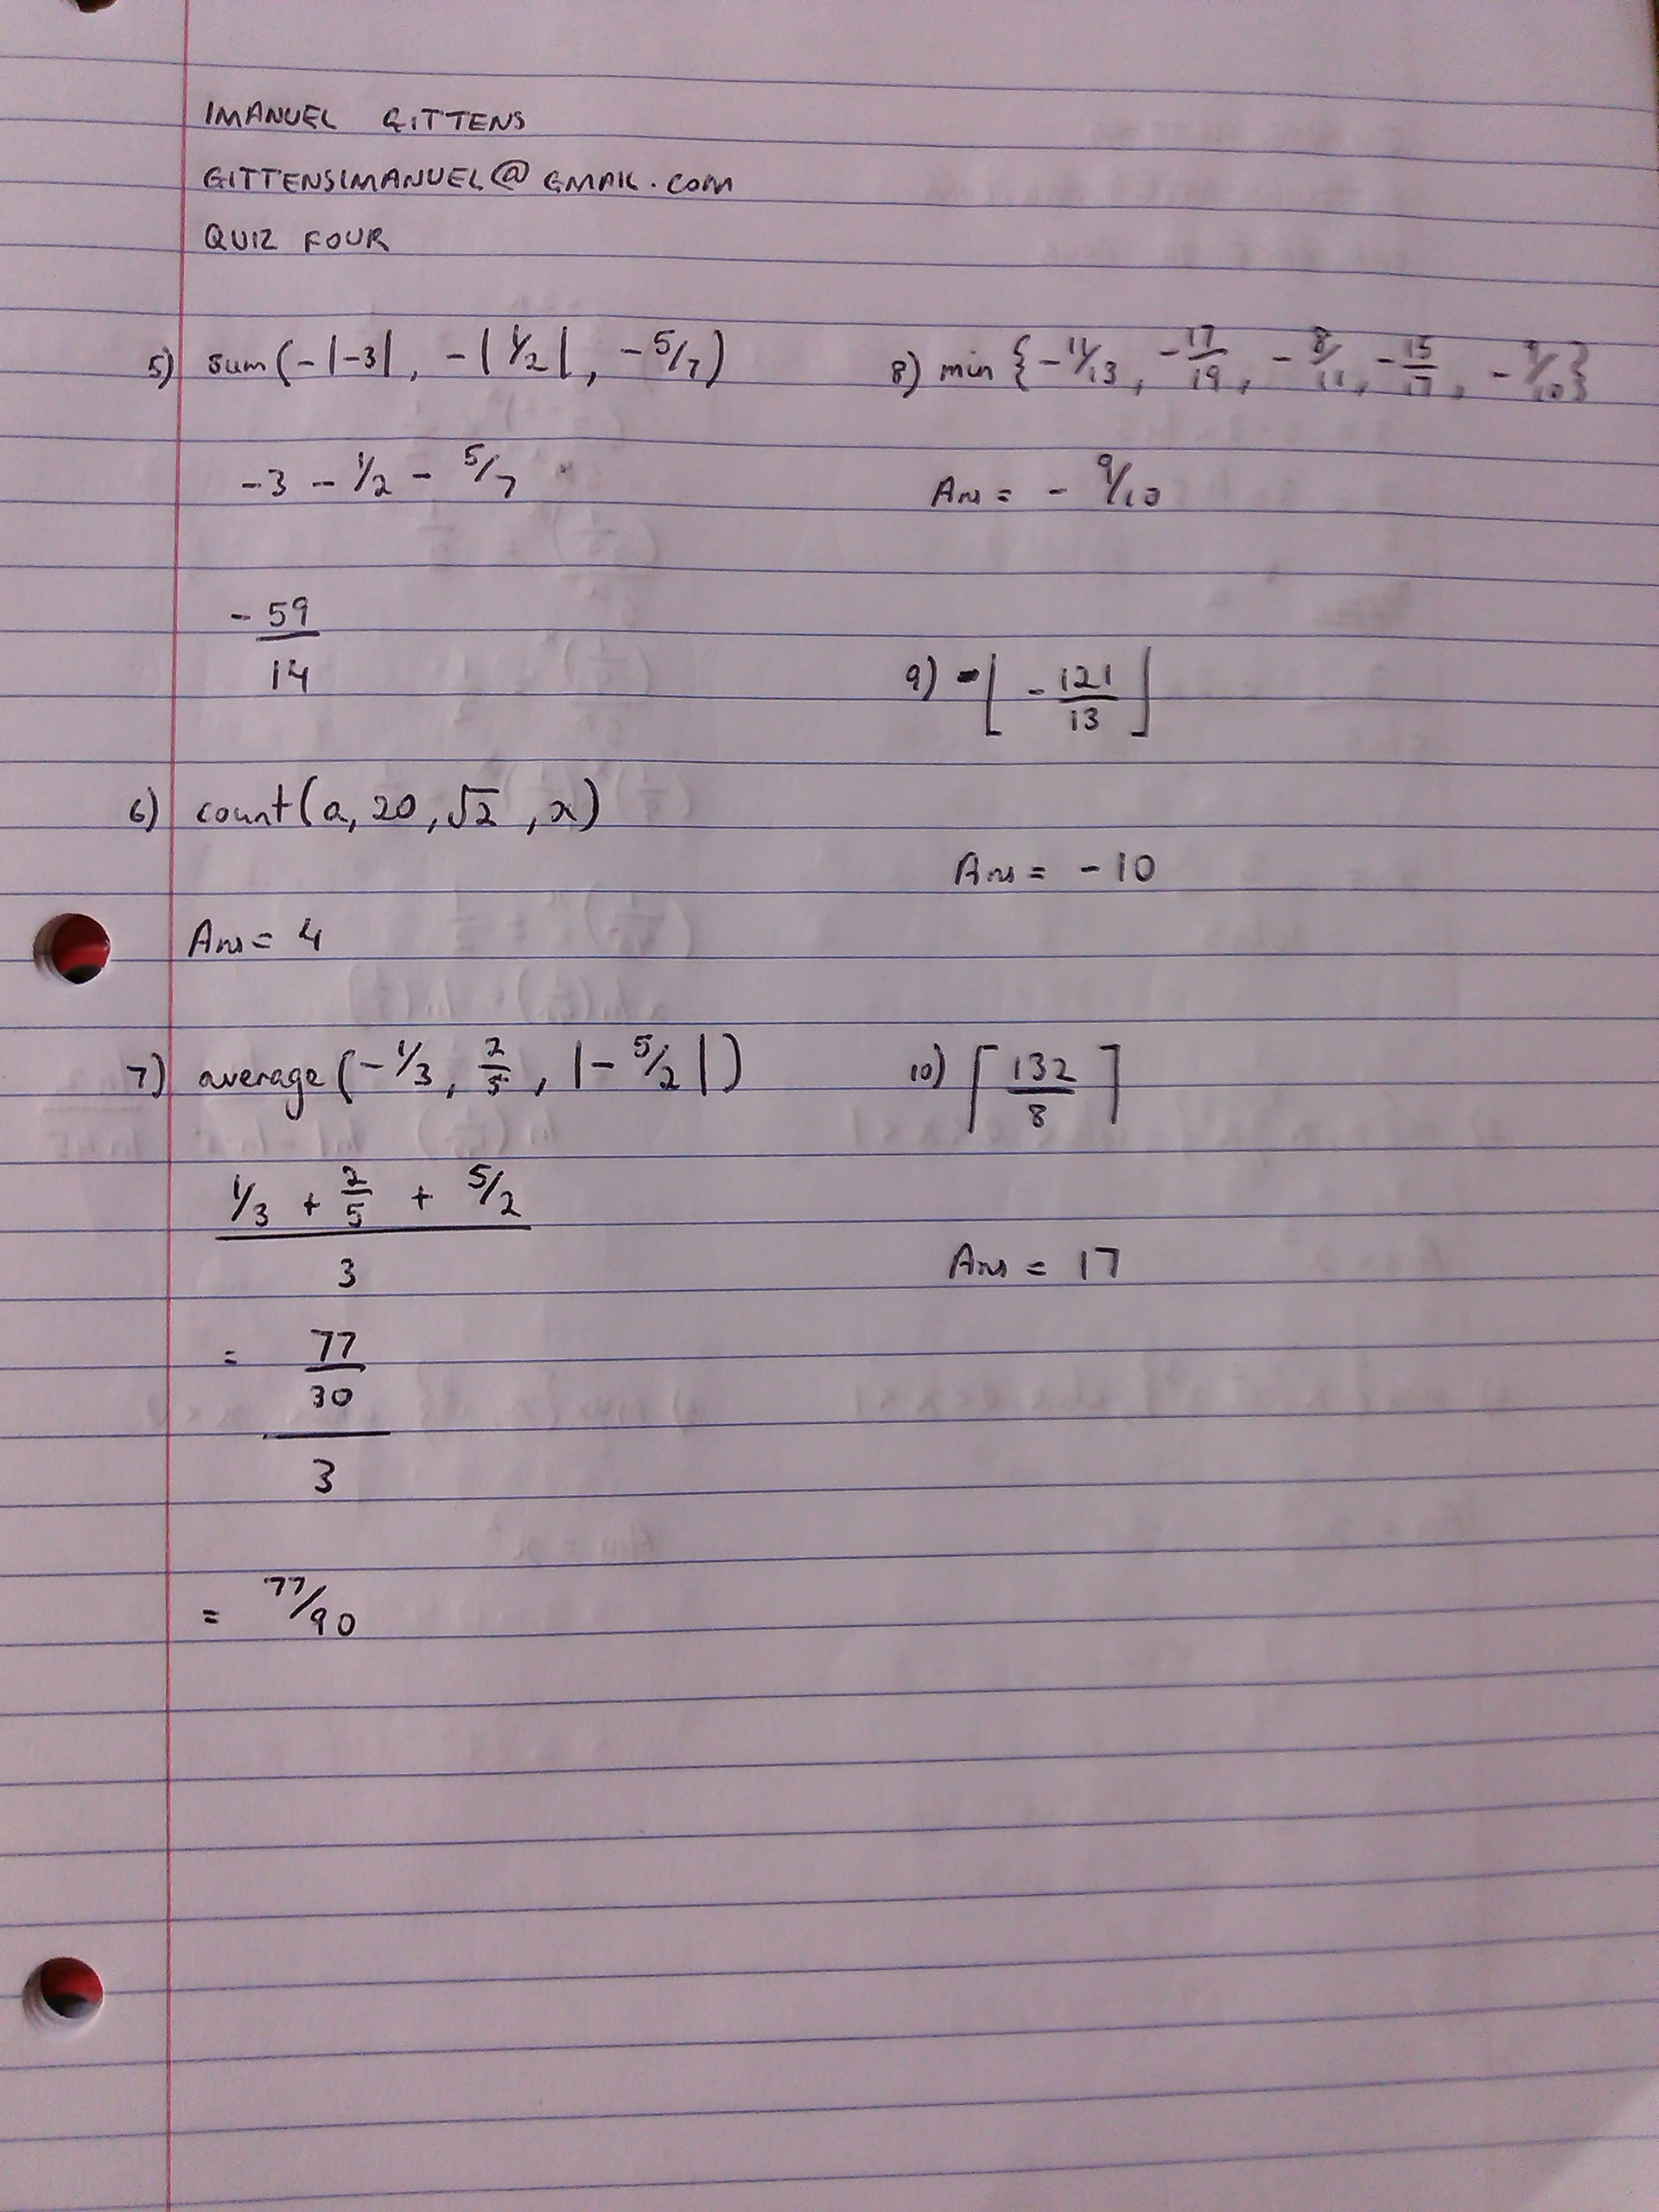 IMANUEL GITTENS
GITTENSIMANUEL@GMAIL.COM
QUIZ FOUR
5) sum(-|-3|, -|1/2|, -5/7)
-3 - 1/2 - 5/7
-59/14
6) count(a, 20, √2, x)
Ans = 4
7) average(-1/3, 2/5, |-5/2|)
1/3 + 2/5 + 5/2
3
= 77/30
3
= 77/90
8) min {-11/13, -17/19, -8/11, -15/17, -9/10}
Ans = -9/10
9) -⌊-121/13⌋
Ans = -10
10) ⌈132/8⌉
Ans = 17